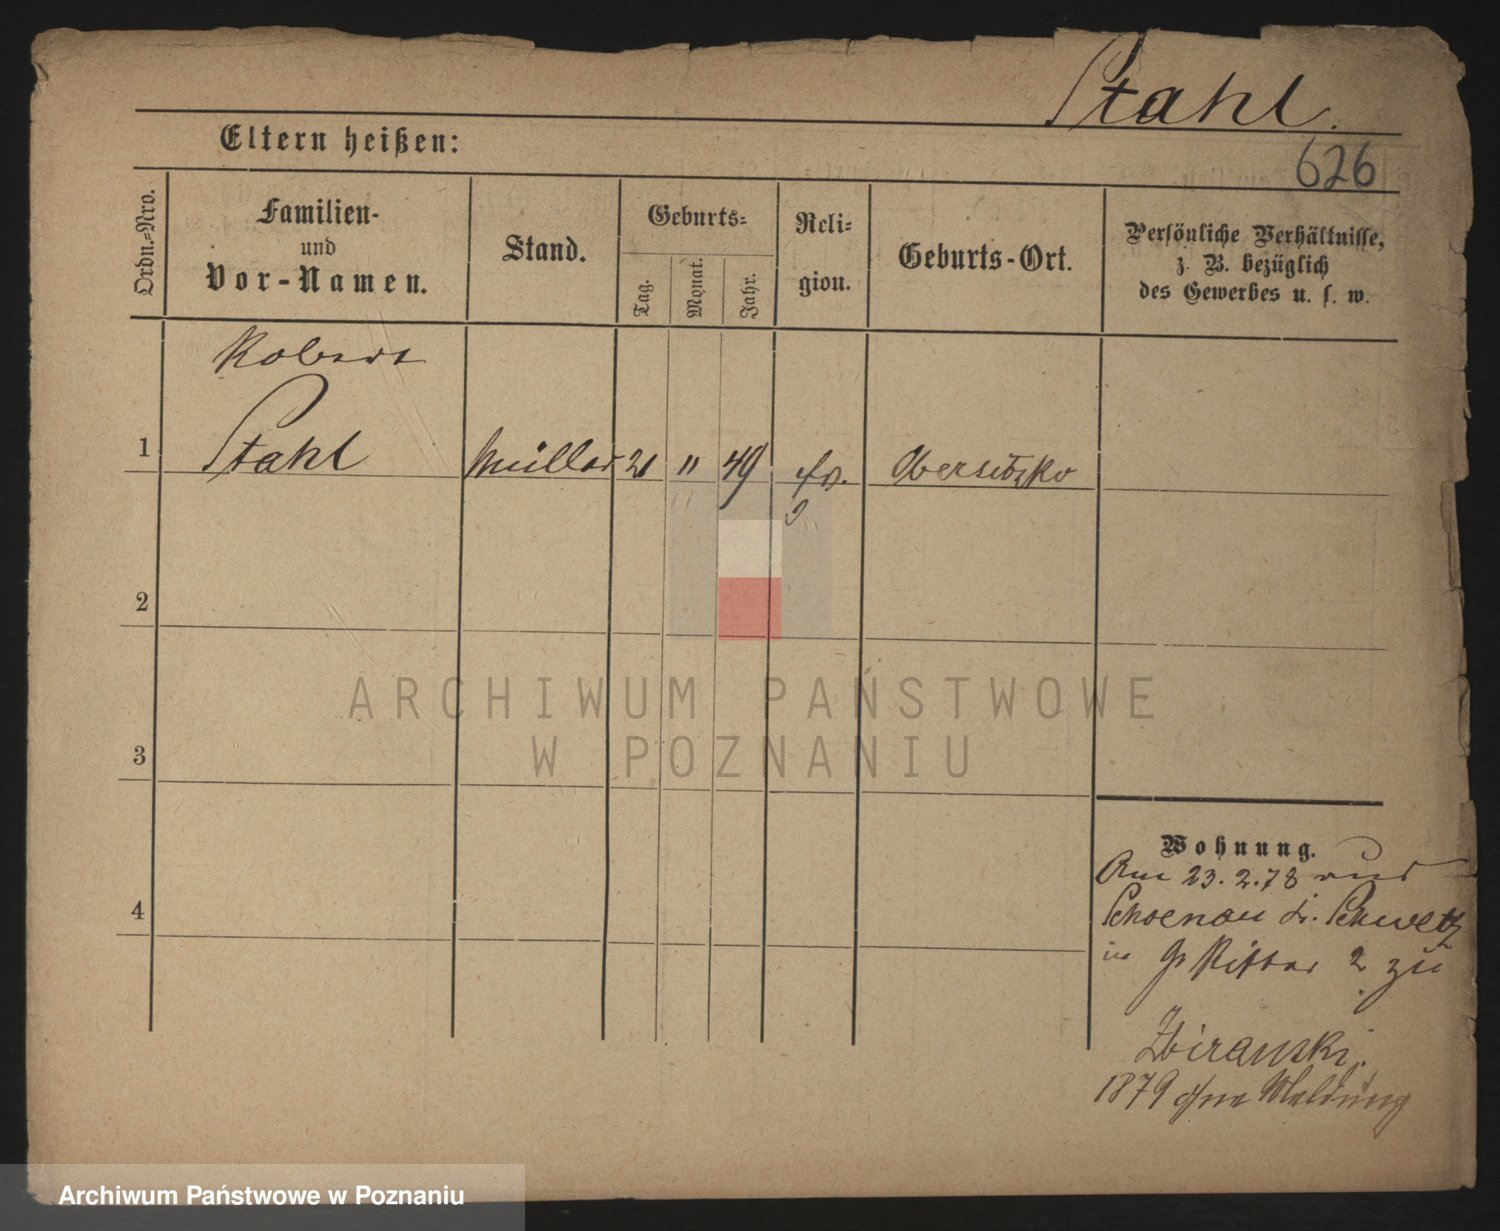 Stahl.
626
Eltern heißen:
Ordn.=Nro.
Familien-
und
Vor-Namen.
Stand.
Geburts=
Tag.
Monat.
Jahr.
Reli=
gion.
Geburts-Ort.
Persönliche Verhältnisse,
z. B. bezüglich
des Gewerbes u. s. w.
Robert
1 Stahl Müller 21 " 49 Obersitzko
2
3
4
Wohnung.
Am 23.2.78 aus
Schoenau Kr. Schwetz
in Gr Ritter 2 zu
1879 ohne Meldung
ARCHIWUM PAŃSTWOWE
W POZNANIU
Archiwum Państwowe w Poznaniu